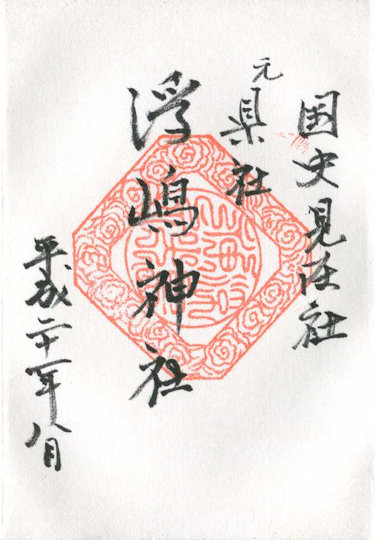 国史見在社
元県社
浮嶋神社
平成二十一年八月